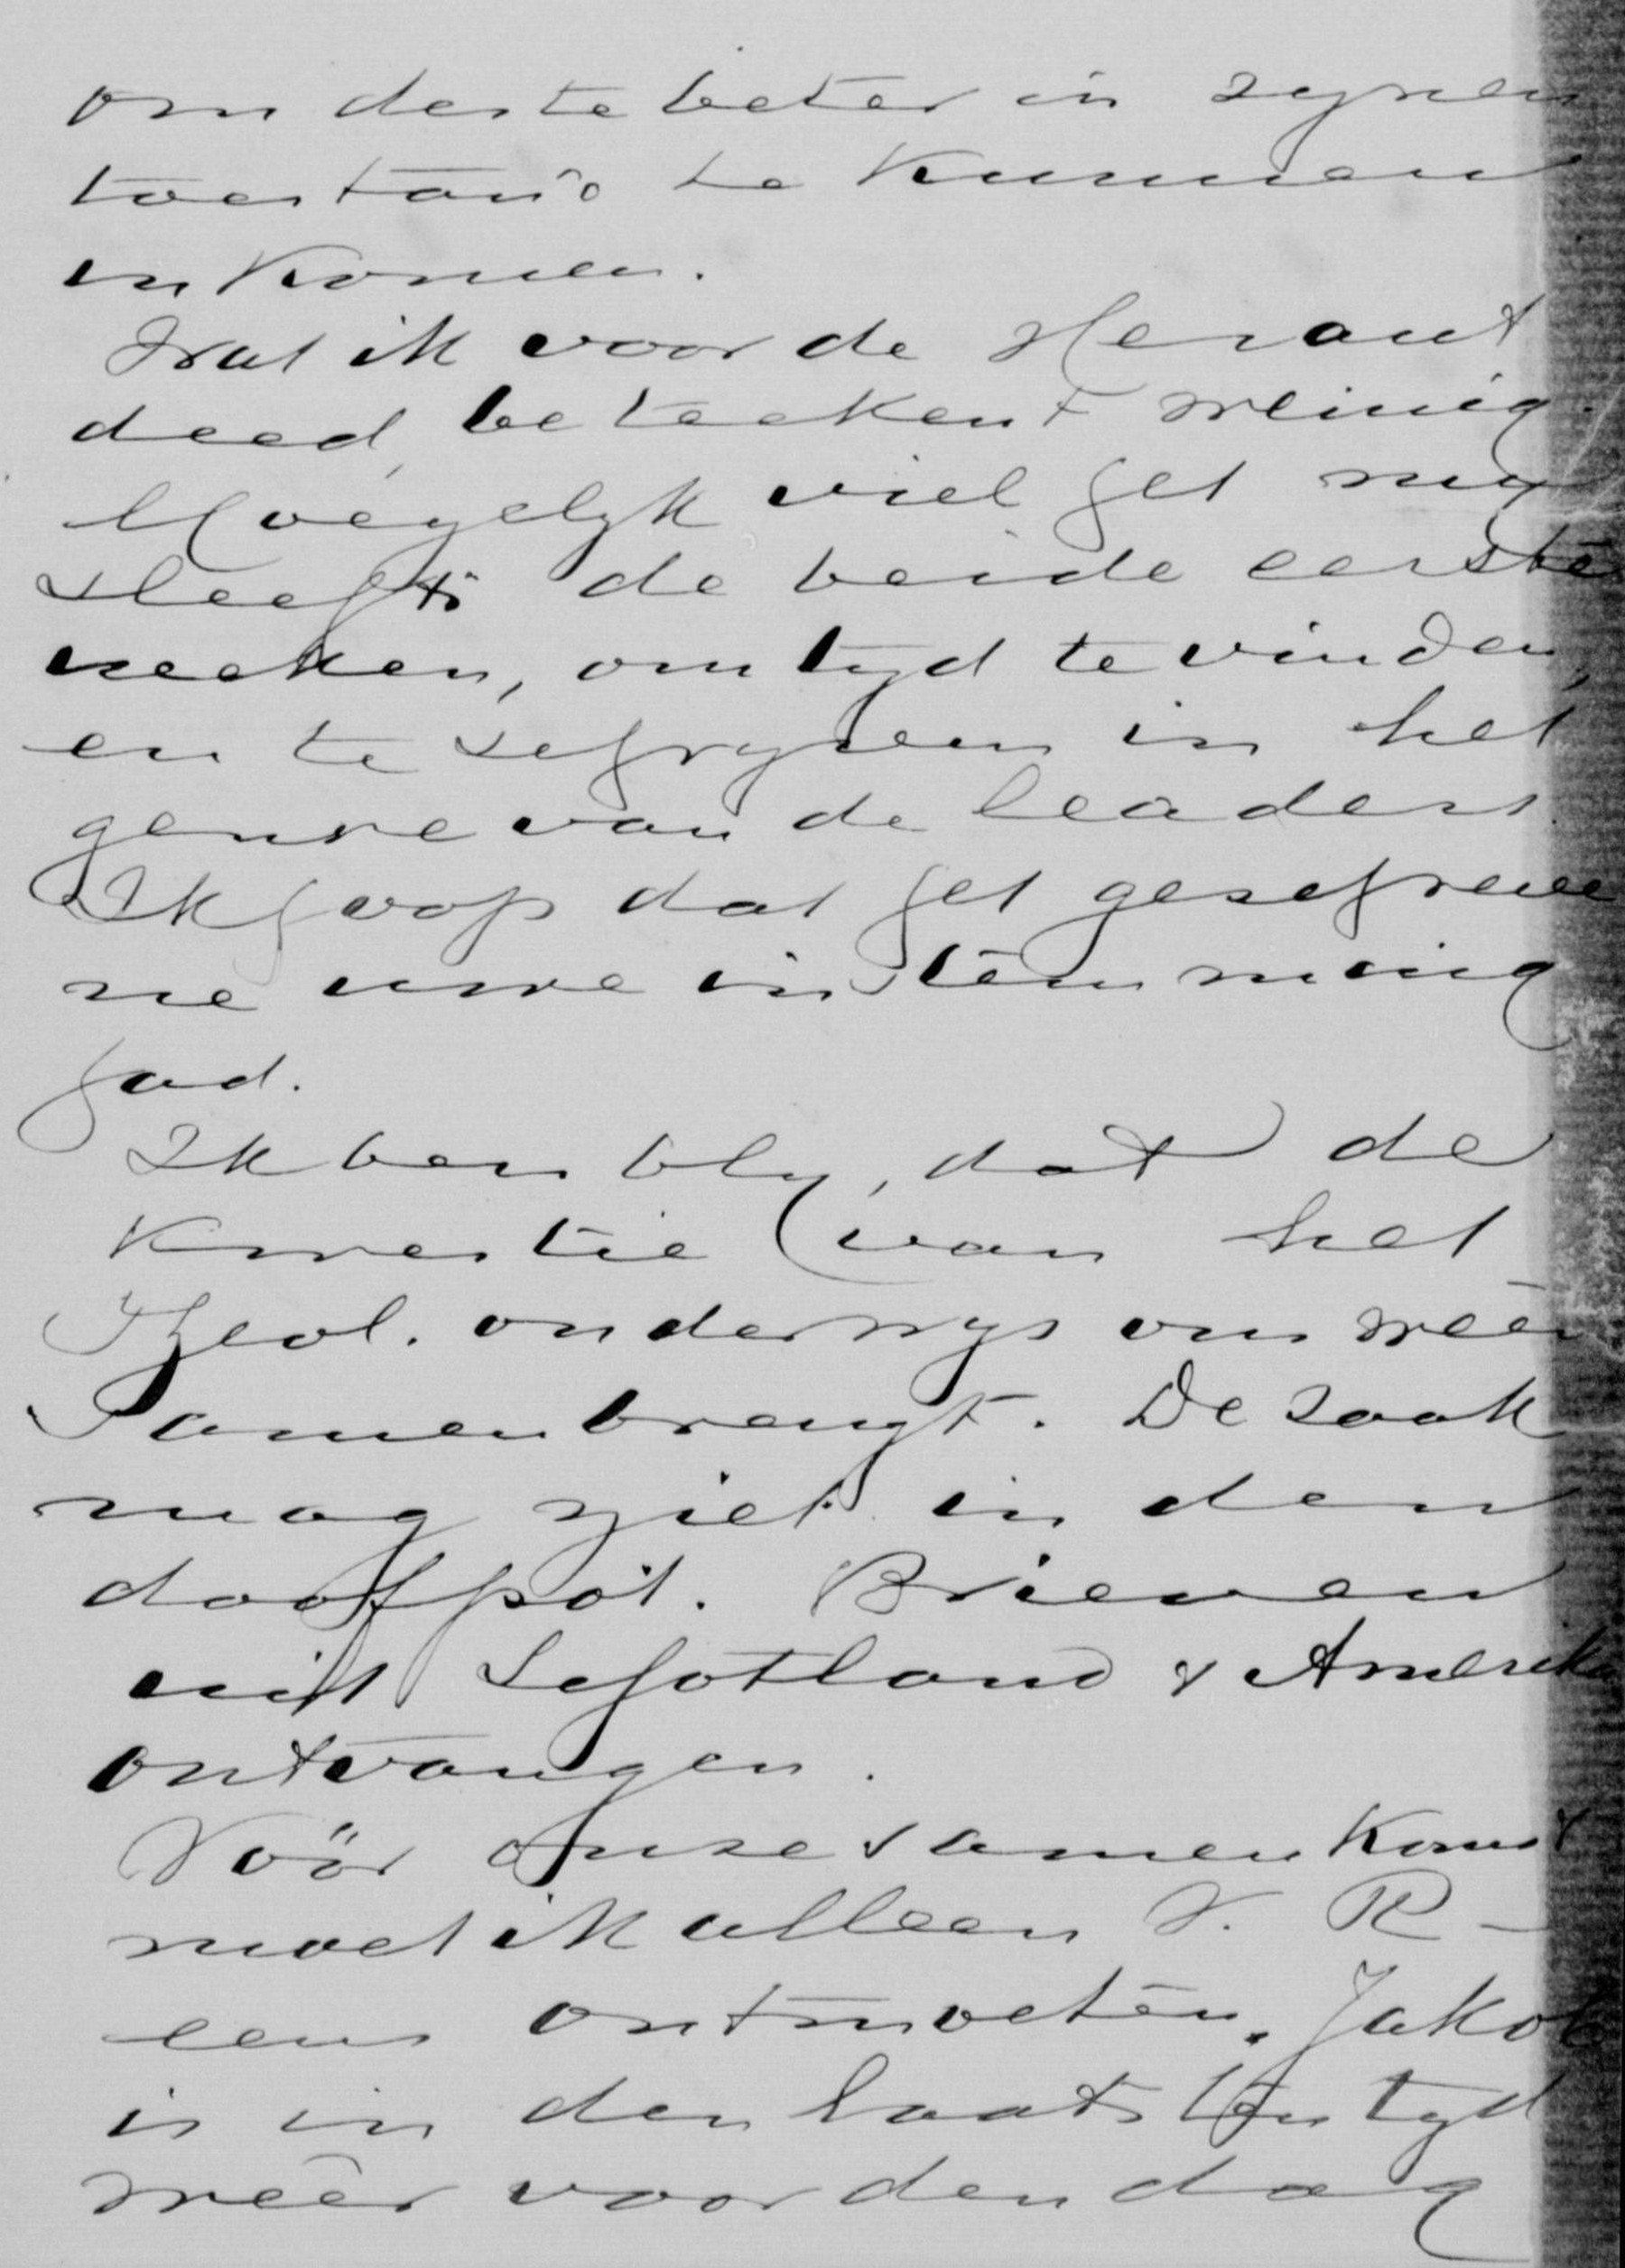 om des te beter in zynen
toestand te kunnen
inkomen.
Wat ik voor de Heraut
deed, beteekent weinig.
Moeyelyk viel het my
slechts de beide eerste
weeken, om tyd te vinden,
en te schryven in het
genre van de leaders.
Ik hoop dat het geschreve
ne uwe instemming
had.
Ik ben bly, dat de
kwestie van het
Theol. onderwys ons weêr
samenbrengt. De zaak
mag niet in den
doofpot. Brieven
uit Schotland & Amerika
ontvangen.
Vóór onze samenkomst
moet ik alleen V. R -
eens ontmoeten. Jakob
is in den laatsten tyd
weêr voor den dag